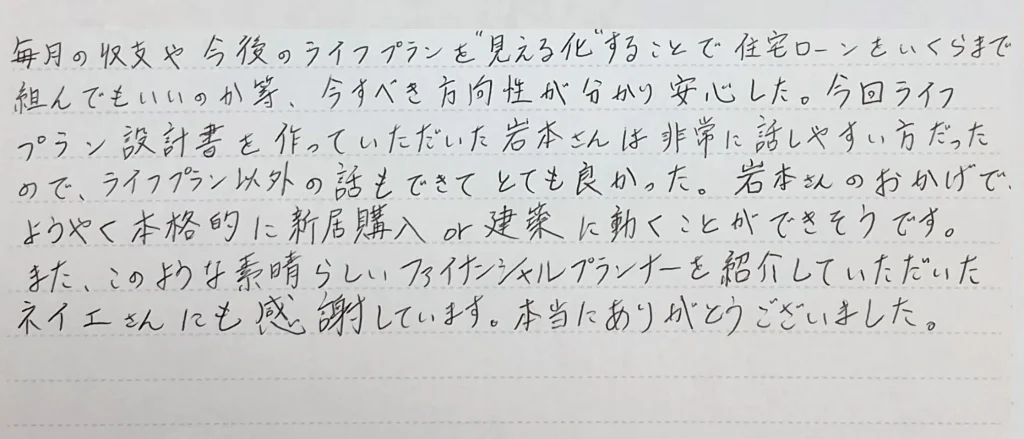 毎月の収支や今後のライフプランを"見える化"することで住宅ローンをいくらまで
組んでもいいのか等、今すべき方向性が分かり安心した。今回ライフ
プラン設計書を作っていただいた岩本さんは非常に話しやすい方だった
ので、ライフプラン以外の話もできてとても良かった。岩本さんのおかげで、
ようやく本格的に新居購入or建築に動くことができそうです。
また、このような素晴らしいファイナンシャルプランナーを紹介していただいた
ネイエさんにも感謝しています。本当にありがとうございました。